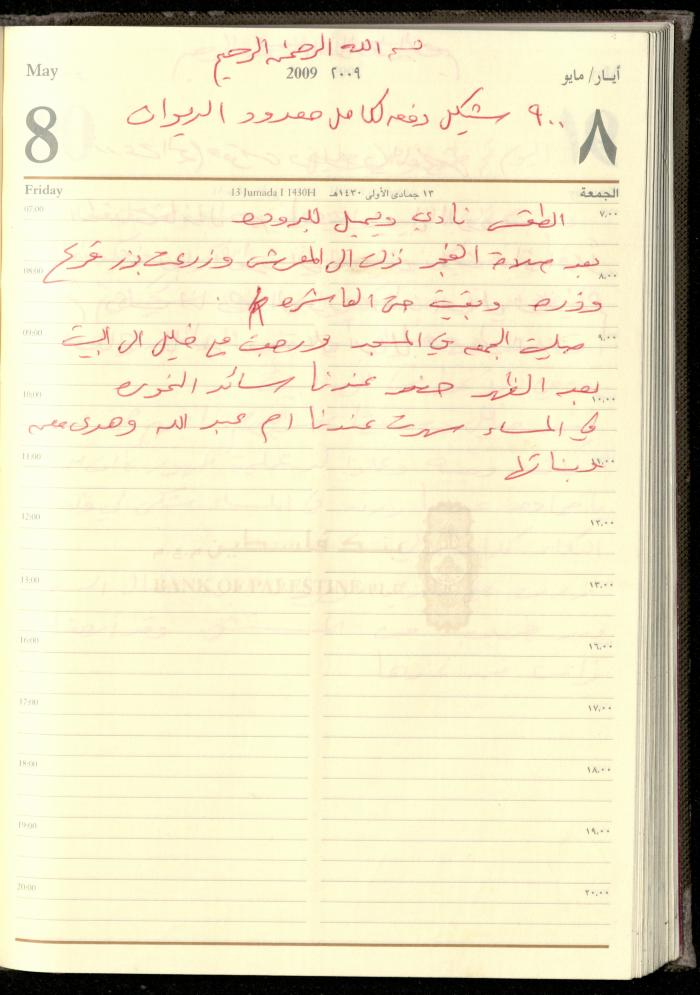 بسم الله الرحمن الرحيم
May 2009 ٢٠٠٩ أيـار/ مايو
8 ٨
٩٠٠ شيكل دفعه لكامل حمدود الديوان
Friday 13 Jumada I 1430H ١٣ جمادى الأولى ١٤٣٠هـ الجمعة
07:00 ٧,٠٠
الطقس نادي ويميل للبروده
بعد صلاة الفجر نزلت ال المفرش وزرعت بزر قرع
08:00 ٨,٠٠
وذره وبقيت حتى العاشره
09:00 ٩,٠٠
صليت الجمعه في المسجد ورجعت مع خليل ال البيت
بعد الظهر حضر عندنا سائد
10:00 ١٠,٠٠
في المساء سهرت عندنا ام عبد الله وهدى
11:00 ١١,٠٠
وبناتها
12:00 ١٢,٠٠
بنك فلسطين
13:00 ١٣,٠٠
BANK OF PALESTINE
16:00 ١٦,٠٠
17:00 ١٧,٠٠
18:00 ١٨,٠٠
19:00 ١٩,٠٠
20:00 ٢٠,٠٠